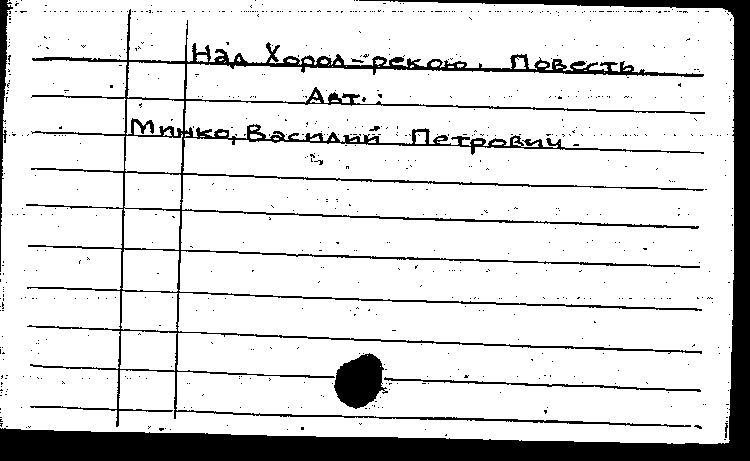 Над Хорол-рекою. Повесть.
Авт.:
Минко, Василий Петрович.